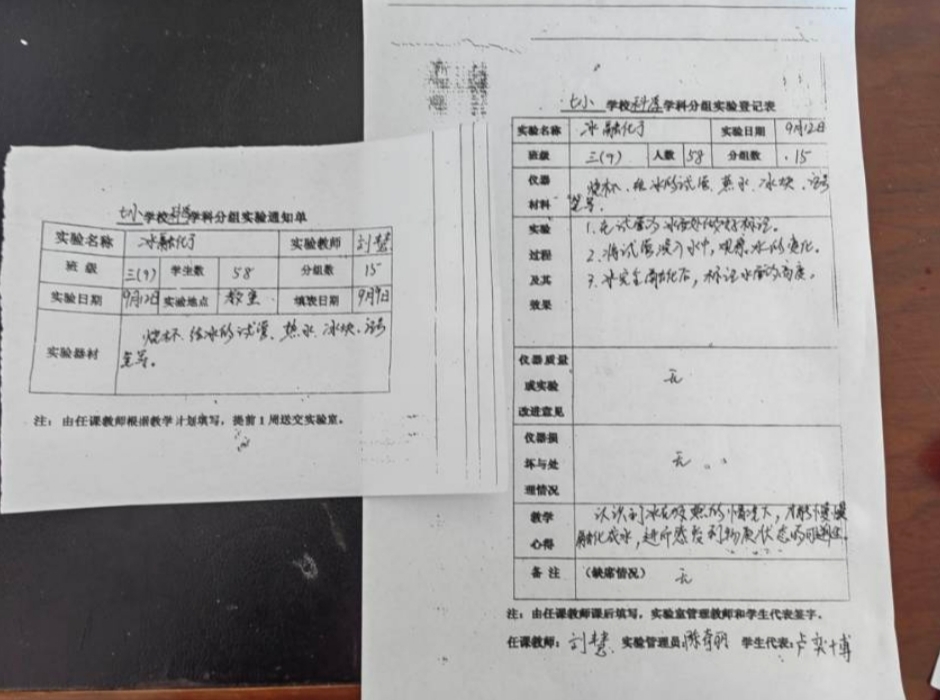 七小学校科学学科分组实验通知单
实验名称 冰融化了 实验教师 刘慧
班级 三(9) 学生数 58 分组数 15
实验日期 9月12日 实验地点 教室 填表日期 9月9日
实验器材 烧杯、结冰的试管、热水、冰块、记号
笔等。
注：由任课教师根据教学计划填写，提前1周送交实验室。
七小学校科学学科分组实验登记表
实验名称 冰融化了 实验日期 9月12日
班级 三(9) 人数 58 分组数 15
仪器 烧杯、结冰的试管、热水、冰块、记号
材料 笔等。
实验 1.在试管外冰面处做好标记。
过程 2.将试管浸入水中，观察冰的变化。
及其 3.冰完全融化后，标记水面的高度。
效果
仪器质量
或实验 无
改进意见
仪器损
坏与处 无
理情况
教学 认识到冰在吸热的情况下，才能慢慢
心得 融化成水，进而感知到物质状态的可逆性。
备注 (缺席情况) 无
注：由任课教师课后填写，实验室管理教师和学生代表签字。
任课教师：刘慧 实验管理员： 学生代表：卢奕博